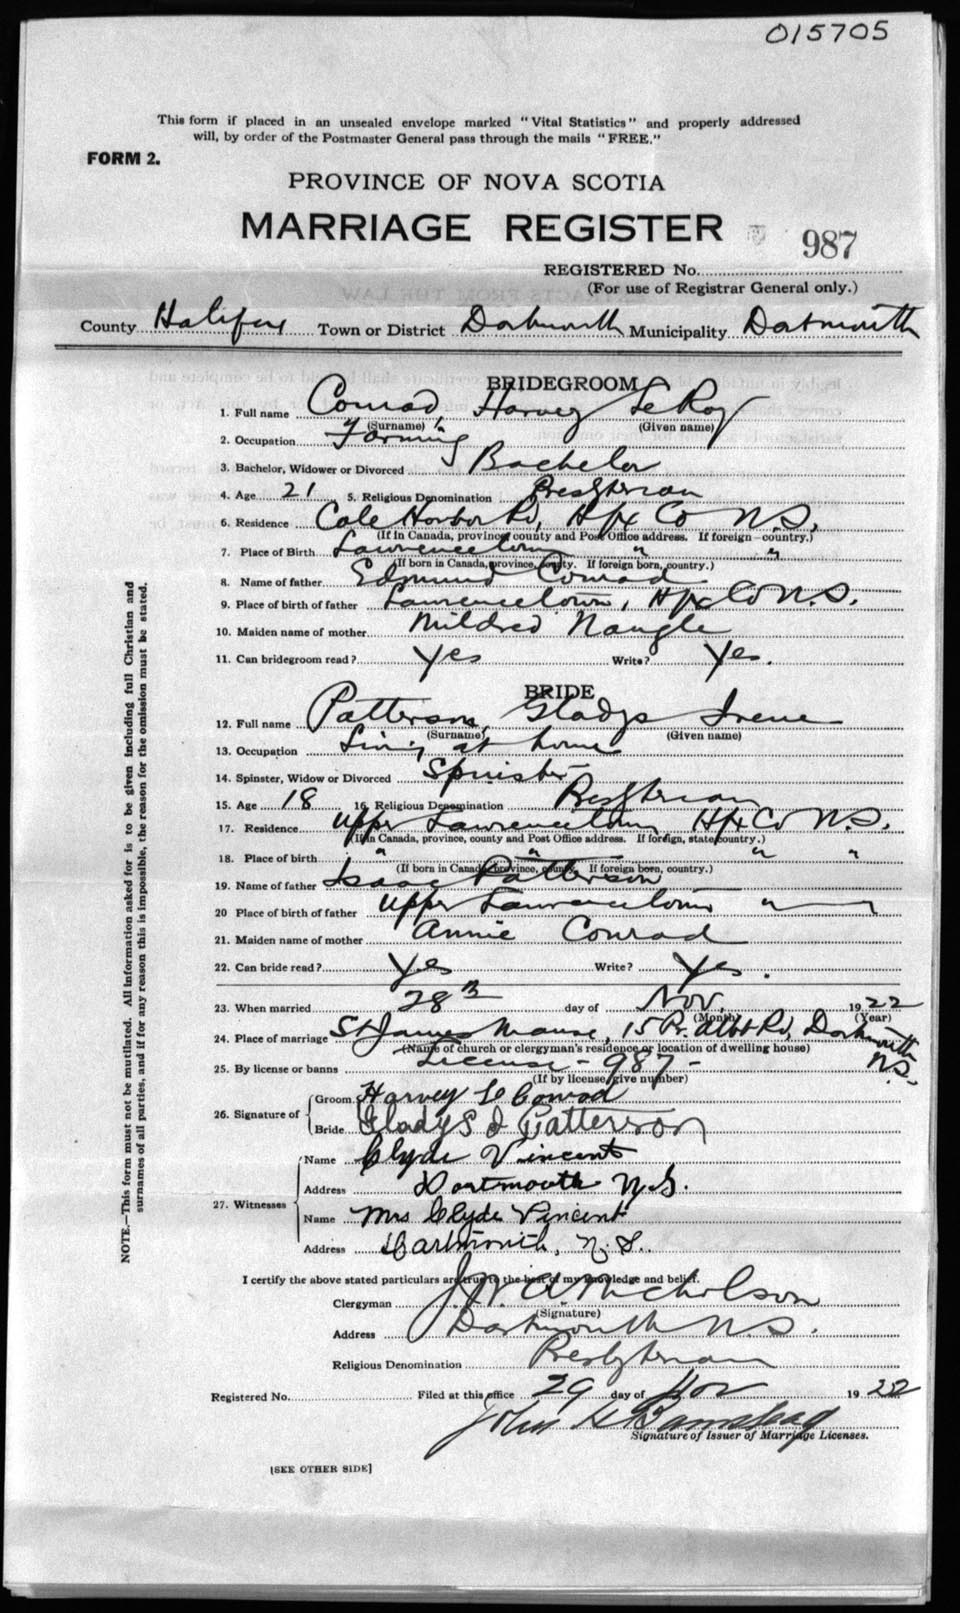 015705
This form if placed in an unsealed envelope marked "Vital Statistics" and properly addressed
will, by order of the Postmaster General pass through the mails "FREE."
FORM 2.
PROVINCE OF NOVA SCOTIA
MARRIAGE REGISTER 987
REGISTERED No.
(For use of Registrar General only.)
County Halifax Town or District Dartmouth Municipality Dartmouth
BRIDEGROOM
1. Full name Conrad, Harvey LeRoy
(Surname) (Given name)
2. Occupation Farming
3. Bachelor, Widower or Divorced Bachelor
4. Age 21 5. Religious Denomination Presbyterian
6. Residence Cole Harbor Rd, Hfx Co N.S.
(If in Canada, province county and Post Office address. If foreign country.)
7. Place of Birth Lawrencetown " "
(If born in Canada, province, county. If foreign born, country.)
8. Name of father Edmund Conrad
9. Place of birth of father Lawrencetown, Hfx Co N.S.
10. Maiden name of mother Mildred Naugle
11. Can bridegroom read? Yes Write? Yes.
BRIDE
12. Full name Patterson, Gladys Irene
(Surname) (Given name)
13. Occupation Living at home
14. Spinster, Widow or Divorced Spinster
15. Age 18 16. Religious Denomination Presbyterian
17. Residence Upper Lawrencetown Hfx Co N.S.
(If in Canada, province, county and Post Office address. If foreign, state country.)
18. Place of birth " " " "
(If born in Canada, province, county. If foreign born, country.)
19. Name of father Isaac Patterson
20 Place of birth of father Upper Lawrencetown "
21. Maiden name of mother Annie Conrad
22. Can bride read? Yes Write? Yes.
23. When married 28th day of Nov. 1922
(Month) (Year)
24. Place of marriage St James Manse, 15 Pr. Albt Rd, Dartmouth N.S.
(Name of church or clergyman's residence or location of dwelling house)
25. By license or banns License - 987 -
(If by license, give number)
26. Signature of
Groom Harvey L Conrad
Bride Gladys I Patterson
27. Witnesses
Name Clyde Vincent
Address Dartmouth N.S.
Name Mrs Clyde Vincent
Address Dartmouth, N.S.
I certify the above stated particulars are true to the best of my knowledge and belief.
Clergyman J. W. A. Nicholson
(Signature)
Address Dartmouth N.S.
Religious Denomination Presbyterian
Registered No. Filed at this office 29 day of Nov 1922
John
Signature of Issuer of Marriage Licenses.
[SEE OTHER SIDE]
NOTE.—This form must not be mutilated. All information asked for is to be given including full Christian and
surnames of all parties, and if for any reason this is impossible, the reason for the omission must be stated.